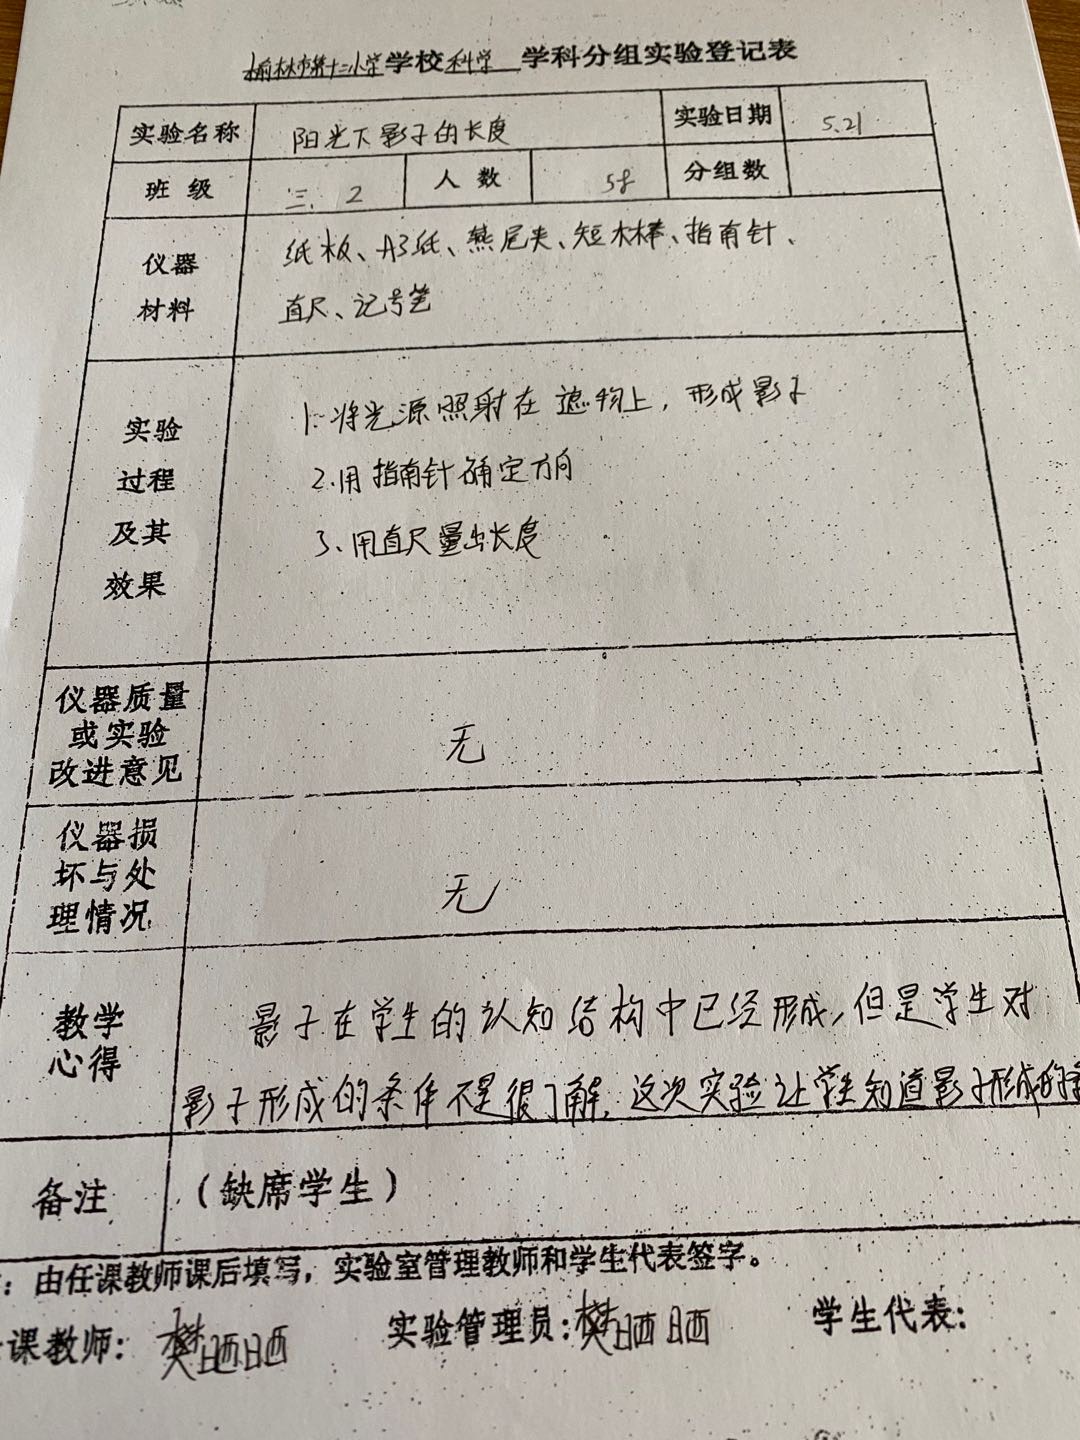 榆林市第十二小学学校科学 学科分组实验登记表
实验名称 阳光下影子的长度 实验日期 5.21
班级 三.2 人数 58 分组数
仪器材料 纸板、A3纸、燕尾夹、短木棒、指南针、
直尺、记号笔
实验过程及其效果 1.将光源照射在遮物上,形成影子
2.用指南针确定方向
3、用直尺量出长度
仪器质量或实验改进意见 无
仪器损坏与处理情况 无
教学心得 影子在学生的认知结构中已经形成,但是学生对
影子形成的条件不是很了解,这次实验让学生知道影子形成的
备注 (缺席学生)
:由任课教师课后填写,实验室管理教师和学生代表签字。
课教师: 樊晒晒 实验管理员:樊晒晒 学生代表: